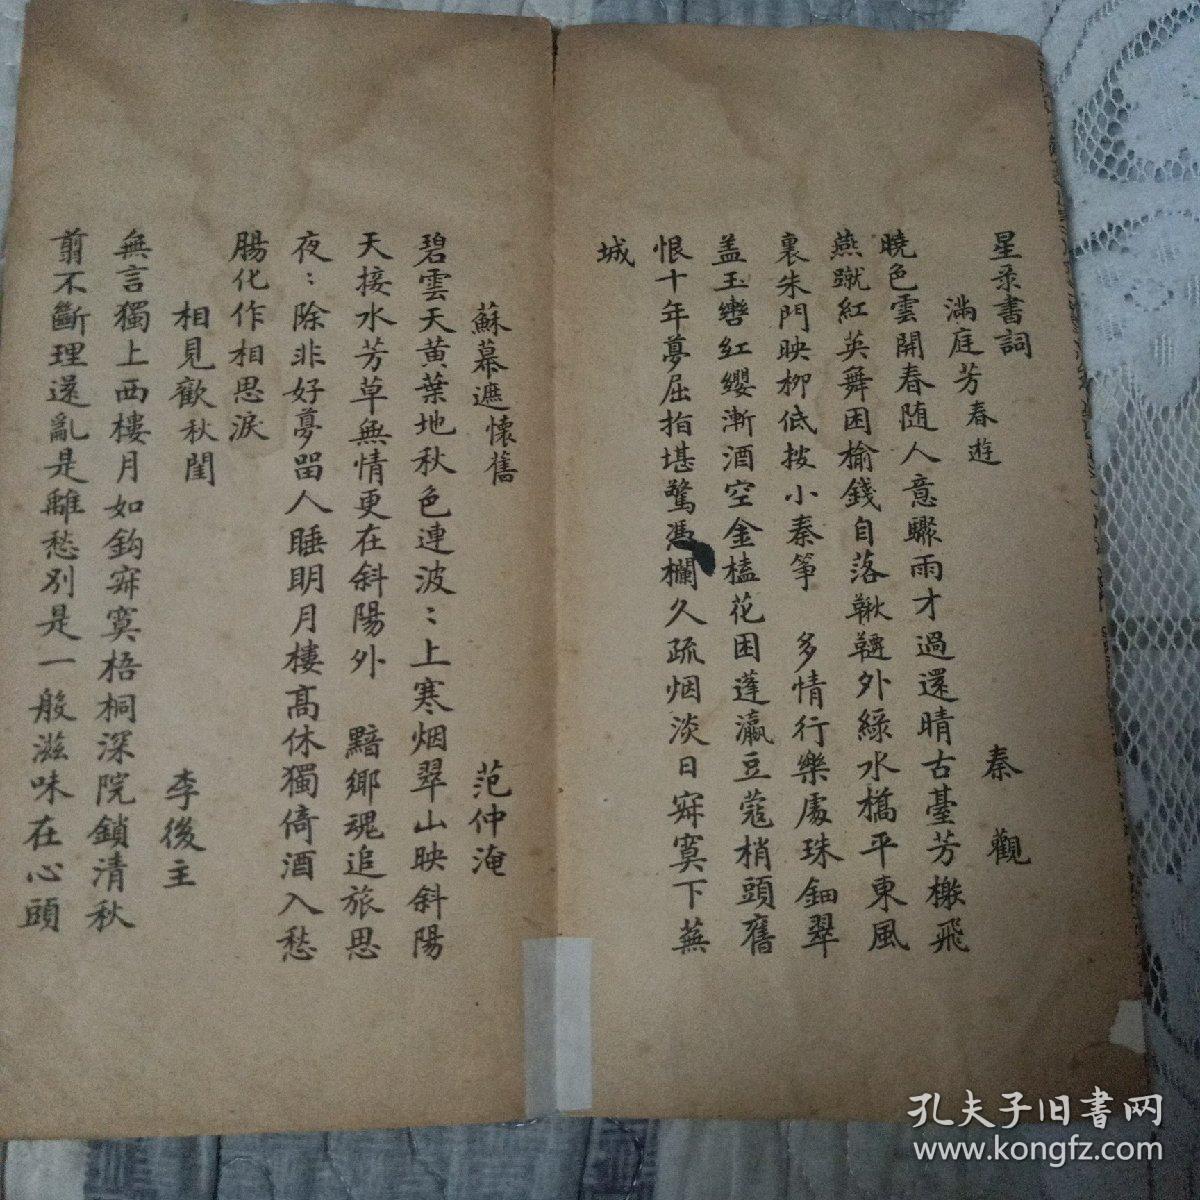 星㒸書詞
滿庭芳春遊 秦觀
曉色雲開春随人意驟雨才過還晴古臺芳榭飛
燕蹴紅英舞困榆錢自落鞦韆外綠水橋平東風
裏朱門映柳低按小秦箏 多情行樂處珠鈿翠
盖玉轡紅纓漸酒空金榼花困蓬瀛豆蔻梢頭舊
恨十年夢屈指堪驚憑欄久疏烟淡日寂寞下蕪
城
蘇幕遮懷舊 范仲淹
碧雲天黄葉地秋色連波:上寒烟翠山映斜陽
天接水芳草無情更在斜陽外 黯鄉魂追旅思
夜:除非好夢畱人睡明月樓高休獨倚酒入愁
腸化作相思淚
相見歡秋閨 李後主
無言獨上西樓月如鈎寂寞梧桐深院鎖清秋
翦不斷理還亂是離愁别是一般滋味在心頭
孔夫子旧书网
www.kongfz.com